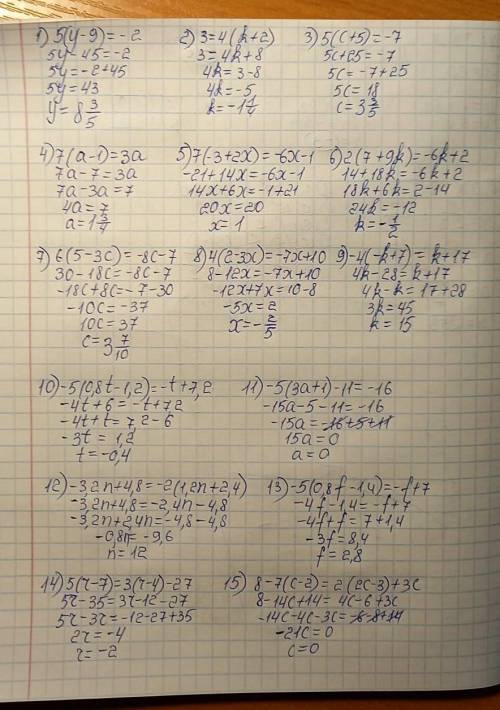 1) 5(y-9)=-2
5y-45=-2
5y=-2+45
5y=43
y=8 3/5
2) 3=4(k+2)
3=4k+8
4k=3-8
4k=-5
k=-1 1/4
3) 5(c+5)=-7
5c+25=-7
5c=-7+25
5c=18
c=3 3/5
4) 7(a-1)=3a
7a-7=3a
7a-3a=7
4a=7
a=1 3/4
5) 7(-3+2x)=-6x-1
-21+14x=-6x-1
14x+6x=-1+21
20x=20
x=1
6) 2(7+9k)=-6k+2
14+18k=-6k+2
18k+6k=2-14
24k=-12
k=-1/2
7) 6(5-3c)=-8c-7
30-18c=-8c-7
-18c+8c=-7-30
-10c=-37
10c=37
c=3 7/10
8) 4(2-3x)=-7x+10
8-12x=-7x+10
-12x+7x=10-8
-5x=2
x=-2/5
9) -4(-k+7)=k+17
4k-28=k+17
4k-k=17+28
3k=45
k=15
10) -5(0,8t-1,2)=-t+7,2
-4t+6=-t+7,2
-4t+t=7,2-6
-3t=1,2
t=-0,4
11) -5(3a+1)-11=-16
-15a-5-11=-16
-15a=-16+5+11
15a=0
a=0
12) -3,2n+4,8=-2(1,2n+2,4)
-3,2n+4,8=-2,4n-4,8
-3,2n+2,4n=-4,8-4,8
-0,8n=-9,6
n=12
13) -5(0,8f-1,4)=-f+7
-4f-1,4=-f+7
-4f+f=7+1,4
-3f=8,4
f=2,8
14) 5(r-7)=3(r-4)-27
5r-35=3r-12-27
5r-3r=-12-27+35
2r=-4
r=-2
15) 8-7(c-2)=2(2c-3)+3c
8-14c+14=4c-6+3c
-14c-4c-3c=-6-8+14
-21c=0
c=0